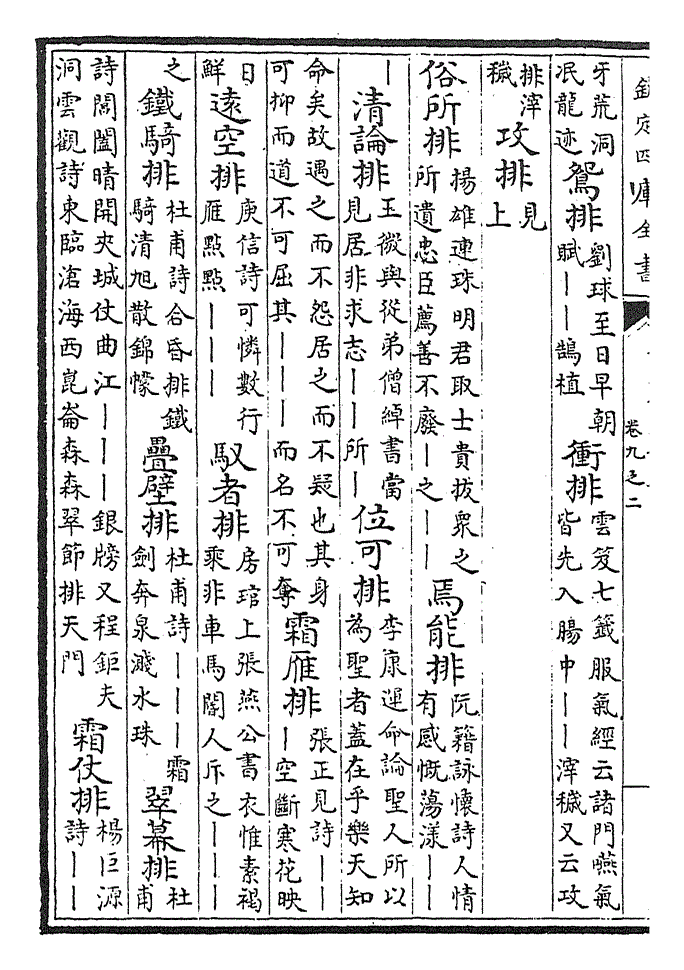 欽定四庫全書
卷九之二
牙荒洞
泯龍迹
鴛排
劉球至日早朝
賦丨丨鵠植
衝排
雲笈七籤服氣經云諸門嚥氣
皆先入腸中丨丨滓穢又云攻
排滓
穢
攻排
見
上
俗所排
揚雄連珠明君取士貴拔衆之
所遺忠臣薦善不廢丨之丨丨
焉能排
阮籍詠懷詩人情
有感慨蕩漾丨丨
丨
清論排
王微與從弟僧綽書當
見居非求志丨丨所丨
位可排
李康運命論聖人所以
為聖者蓋在乎樂天知
命矣故遇之而不怨居之而不疑也其身
可抑而道不可屈其丨丨丨而名不可奪
霜雁排
張正見詩丨丨
丨空斷寒花映
日
鮮
遠空排
庾信詩可憐數行
雁點點丨丨丨
馭者排
房琯上張燕公書衣惟素褐
乘非車馬閽人斥之丨丨丨
之
鐵騎排
杜甫詩合昏排鐵
騎清旭散錦幪
疊壁排
杜甫詩丨丨丨霜
劍奔泉濺水珠
翠幕排
杜
甫
詩閶闔晴開夬城仗曲江丨丨丨銀牓又程鉅夫
洞雲觀詩東臨滄海西崑崙森森翠節排天門
霜仗排
楊巨源
詩丨丨